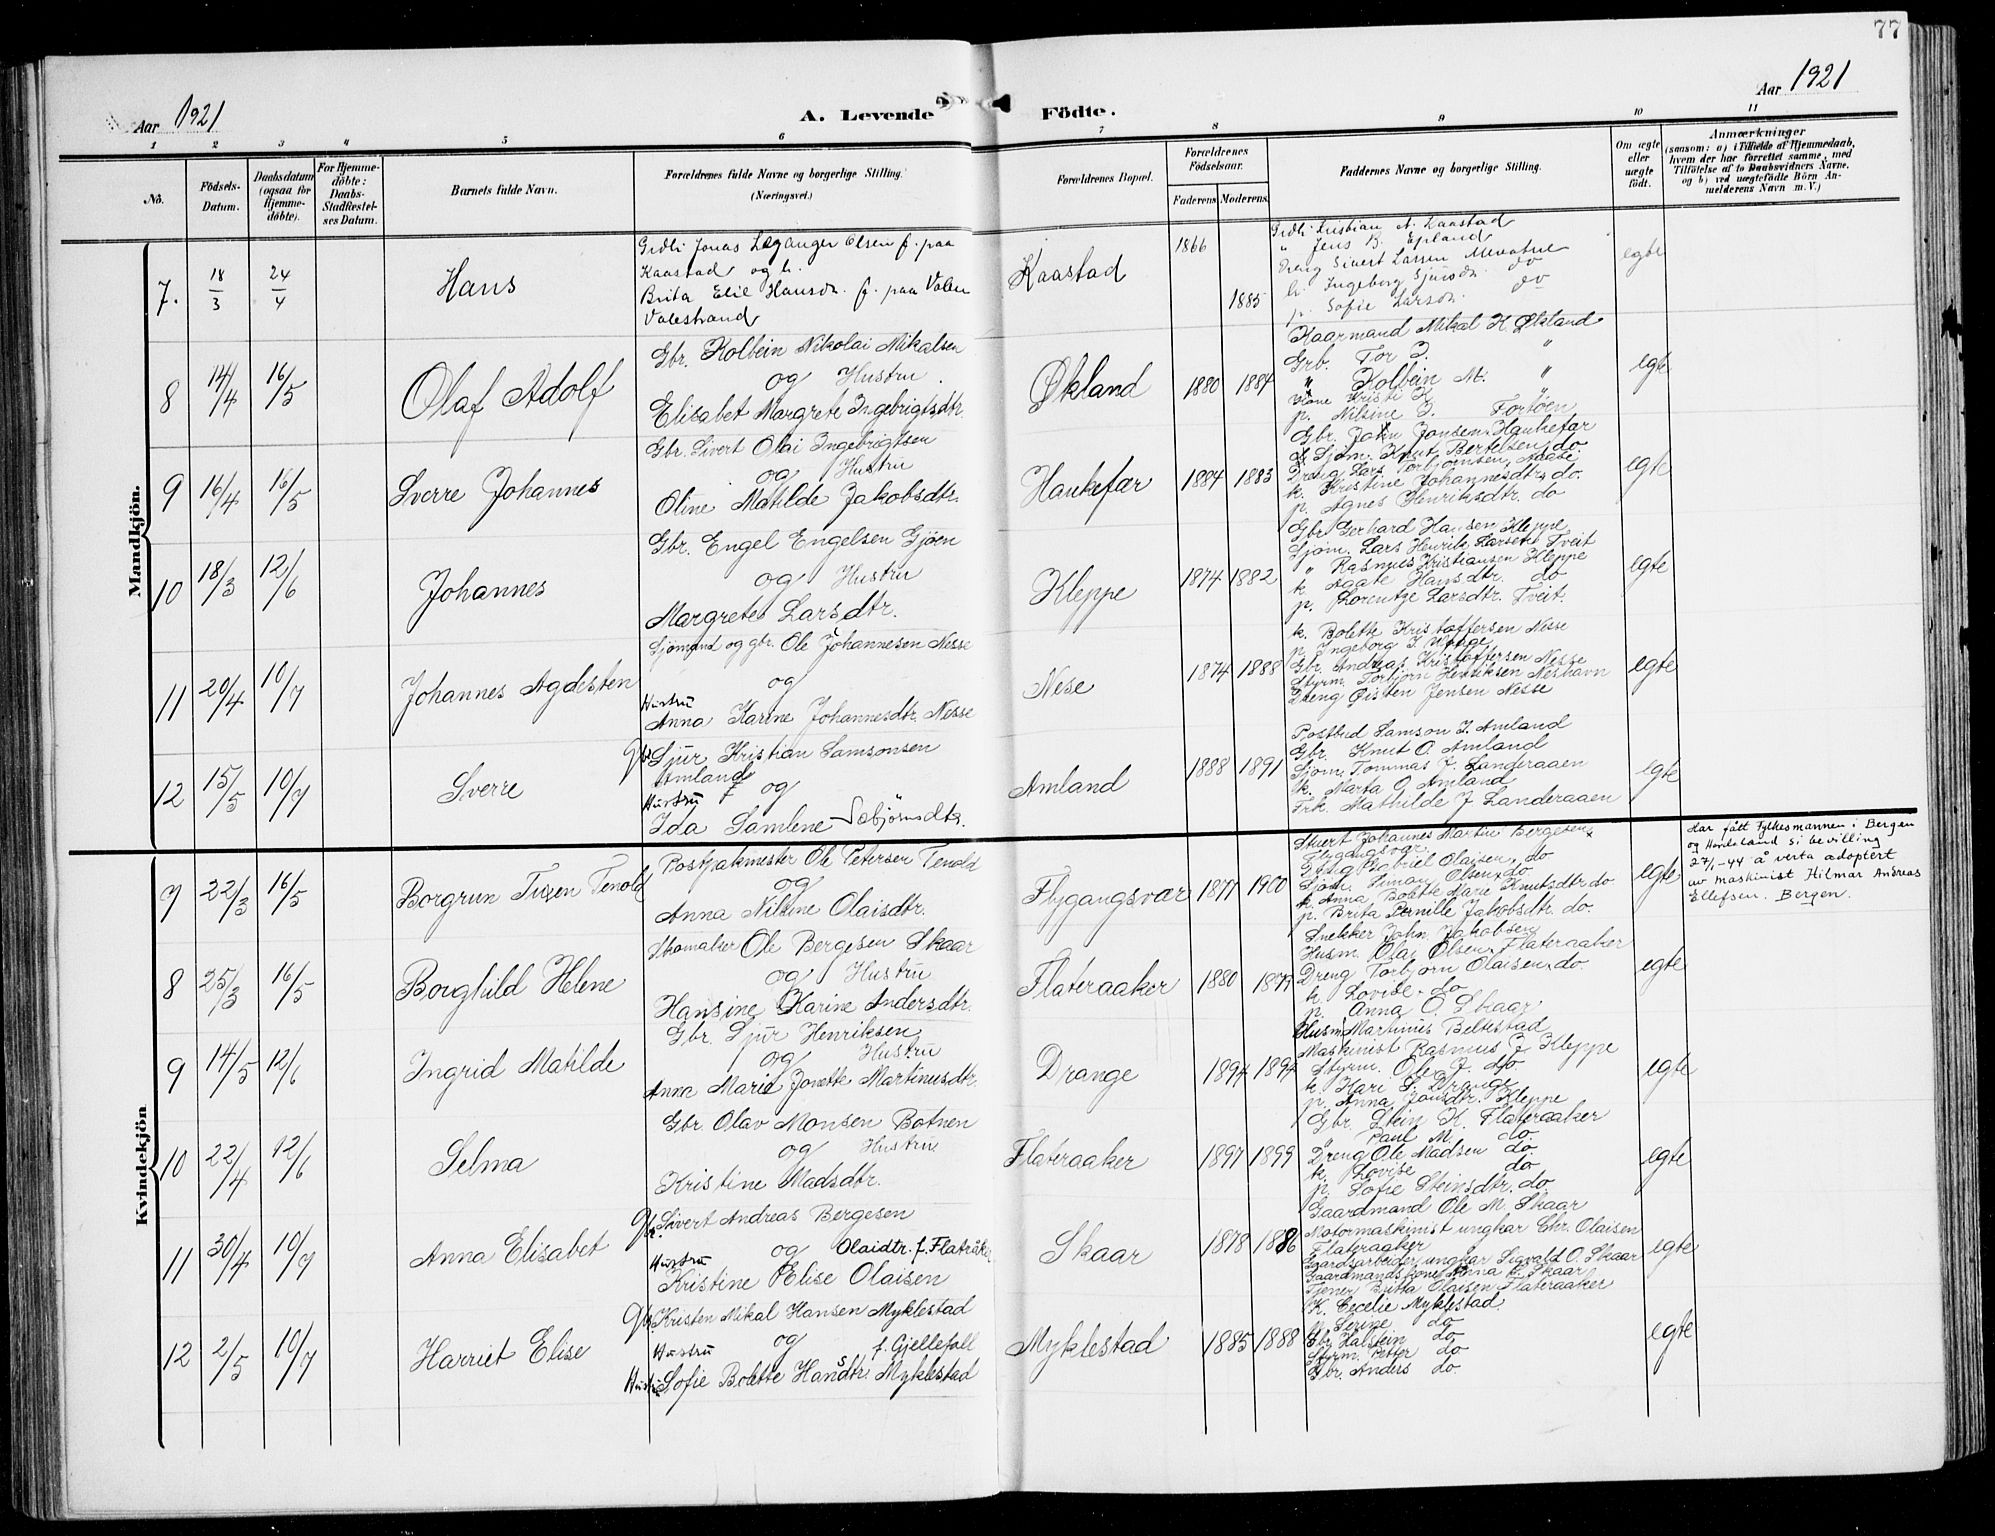 77
Aar 1921
A. Levende Födte.
Aar 1921
1 2 3 4 5 6 7 8 9 10 11
No.
Födsels-Datum.
Daabsdatum (ogsaa for Hjemme-döbte).
For Hjemme-döbte: Daabs-Stadfæstel-ses Datum.
Barnets fulde Navn.
Forældrenes fulde Navne og borgerlige Stilling. (Næringsvei.)
Forældrenes Bopæl.
Forældrenes Födselsaar.
Faderens. Moderens.
Faddernes Navne og borgerlige Stilling.
Om ægte eller uægte födt.
Anmærkninger
(saasom: a) i Tilfælde af Hjemmedaab, hvem der har forrettet samme, med Tilföielse af to Daabsvidners Navne, og b) ved uægtefödte Börn Anmelderens Navn m. V.)
Mandkjön.
7. 18/3 24/4 Hans
Grdb. Jonas Leganger Olsen f. paa
Kaastad og h.
Brita Elie Hansdr. f. paa Valen
Valestrand
Kaastad 1866 1885
Grdb. Kristian A. Kaastad
" Jens B. Epland
Dreng Sivert Larsen
h. Ingeborg Sjursdr. do
p. Sofie Larsdr. do
egte
8 14/4 16/5 Olaf Adolf
Gbr. Kolbein Nikolai Mikalsen
og Hustru
Elisabet Margrete Ingebrigtsdtr.
Økland 1880 1884
Kaarmand Mikal K. Økland
Grb. Tor J. "
" Kolbein M. "
Kone Kristi K. "
p. Nilsine J. Fortöen
egte
9 16/4 16/5 Sverre Johannes
Gbr. Sivert Olai Ingebrigtsen
og Hustru
Oline Matilde Jakobsdtr.
Haukefær 1884 1883
Gbr. John Jonsen Haukefær
Sjøm. Knut Bertelsen do
Dreng Lars Torbjørnsen,
k. Kristine Johannesdtr. do.
p. Agnes Henriksdtr. do
egte
10 18/3 12/6 Johannes
Gbr. Engel Engelsen Gjöen
og Hustru
Margrete Larsdtr.
Kleppe 1874 1882
Gbr. Gerhard Hansen Kleppe
Sjöm. Lars Henrik Larsen Tveit
" Rasmus Kristiansen Kleppe
k. Agate Hansdtr. do
p. Lorentze Larsdtr. Tveit.
egte
11 20/4 10/7 Johannes Agdesten
Sjömand og gbr. Ole Johannesen Nesse
og
Hustru
Anna Karine Johannesdtr. Nesse
Nese 1874 1888
k. Bolette Kristoffersen Nesse
p. Ingeborg J. Waage
Gbr. Andreas Kristoffersen Nesse
Styrm. Torbjörn Henriksen Neshavn
Dreng Øisten Jensen Nesse
egte
12 15/5 10/7 Sverre
Gbr. Sjur Kristian Samsonsen
Amland og
Hustru
Ida Samlene Sæbjörnsdtr.
Amland 1888 1891
Postbud Samson J. Amland
Gbr. Knut O. Amland
Sjøm. Tommas J. Landeraaen
k. Marta O. Amland
Frk. Mathilde J. Landeraaen
egte
Kvindekjön
7 22/3 16/5 Borgrun Tenold
Postpakmester Ole Petersen Tenold
og
Anna Nilsine Olaisdtr.
Flygangsvær 1877 1900
Johannes Martin Bergesen
Flygangsvær
Gabriel Olaisen, do
Sjöm. Simon Olsen, do
k. Anna Bolette Marie Knutsdtr do
p. Brita Pernille Jakobsdtr. do.
egte
Har fått Fylkesmannen i Bergen
og Hordaland si bevilling
27/1-44 å verta adoptert
av maskinist Hilmar Andreas
Ellefsen. Bergen.
8 25/3 16/5 Borghild Helene
Skomaker Ole Bergesen Skaar
og Hustru
Hansine Karine Andersdtr.
Flateraaker 1880 1879
Snekker John Jakobsen
Husm. Ola Olsen Flateraaker
Dreng Torbjörn Olaisen, do.
k. Lovise, do
p. Anna O. Skaar
egte
9 14/5 12/6 Ingrid Matilde
Gbr. Sjur Henriksen
og Hustru
Anna Marie Jonette Martinusdtr.
Drange 1894 1894
Husm. Martinus Beltestad
Maskinist Rasmus J. Kleppe
Styrm. Ole J. do.
k. Kari S. Drange
p. Anna Jansdtr. Kleppe
egte
10 22/4 12/6 Selma
Gbr. Olav Monsen Botnen
og Hustru
Kristine Madsdtr.
Flateraaker 1897 1899
Gbr. Stein K. Flateraaker
" Paul M. do.
Dreng Ole Madsen do
k. Lovise do
p. Sofie Steinsdtr. do
egte
11 30/4 10/7 Anna Elisabet
Gbr. Sivert Andreas Bergesen
og Olaidtr. f. Flatråker
Hustru
Kristine Elise Olaisen
Skaar 1878 1886
Gaardmand Ole M. Skaar
Motormaskinist ungkar Chr. Olaisen
Flateraaker
Gaardsarbeider ungkar Sigvald O. Skaar
Gaardmandskone Anna Skaar
Tjener Britta Olaisen Flateraaker
egte
12 2/5 10/7 Harriet Elise
Gbr. Kristen Mikal Hansen Myklestad
og f. Gjellefall
Hustru
Sofie Bolette Hansdtr. Myklestad
Myklestad 1885 1888
K. Cecelie Myklestad
p. Serine do
Gbr. Halstein do
Styrm. Petter do
Gbr. Anders do.
egte